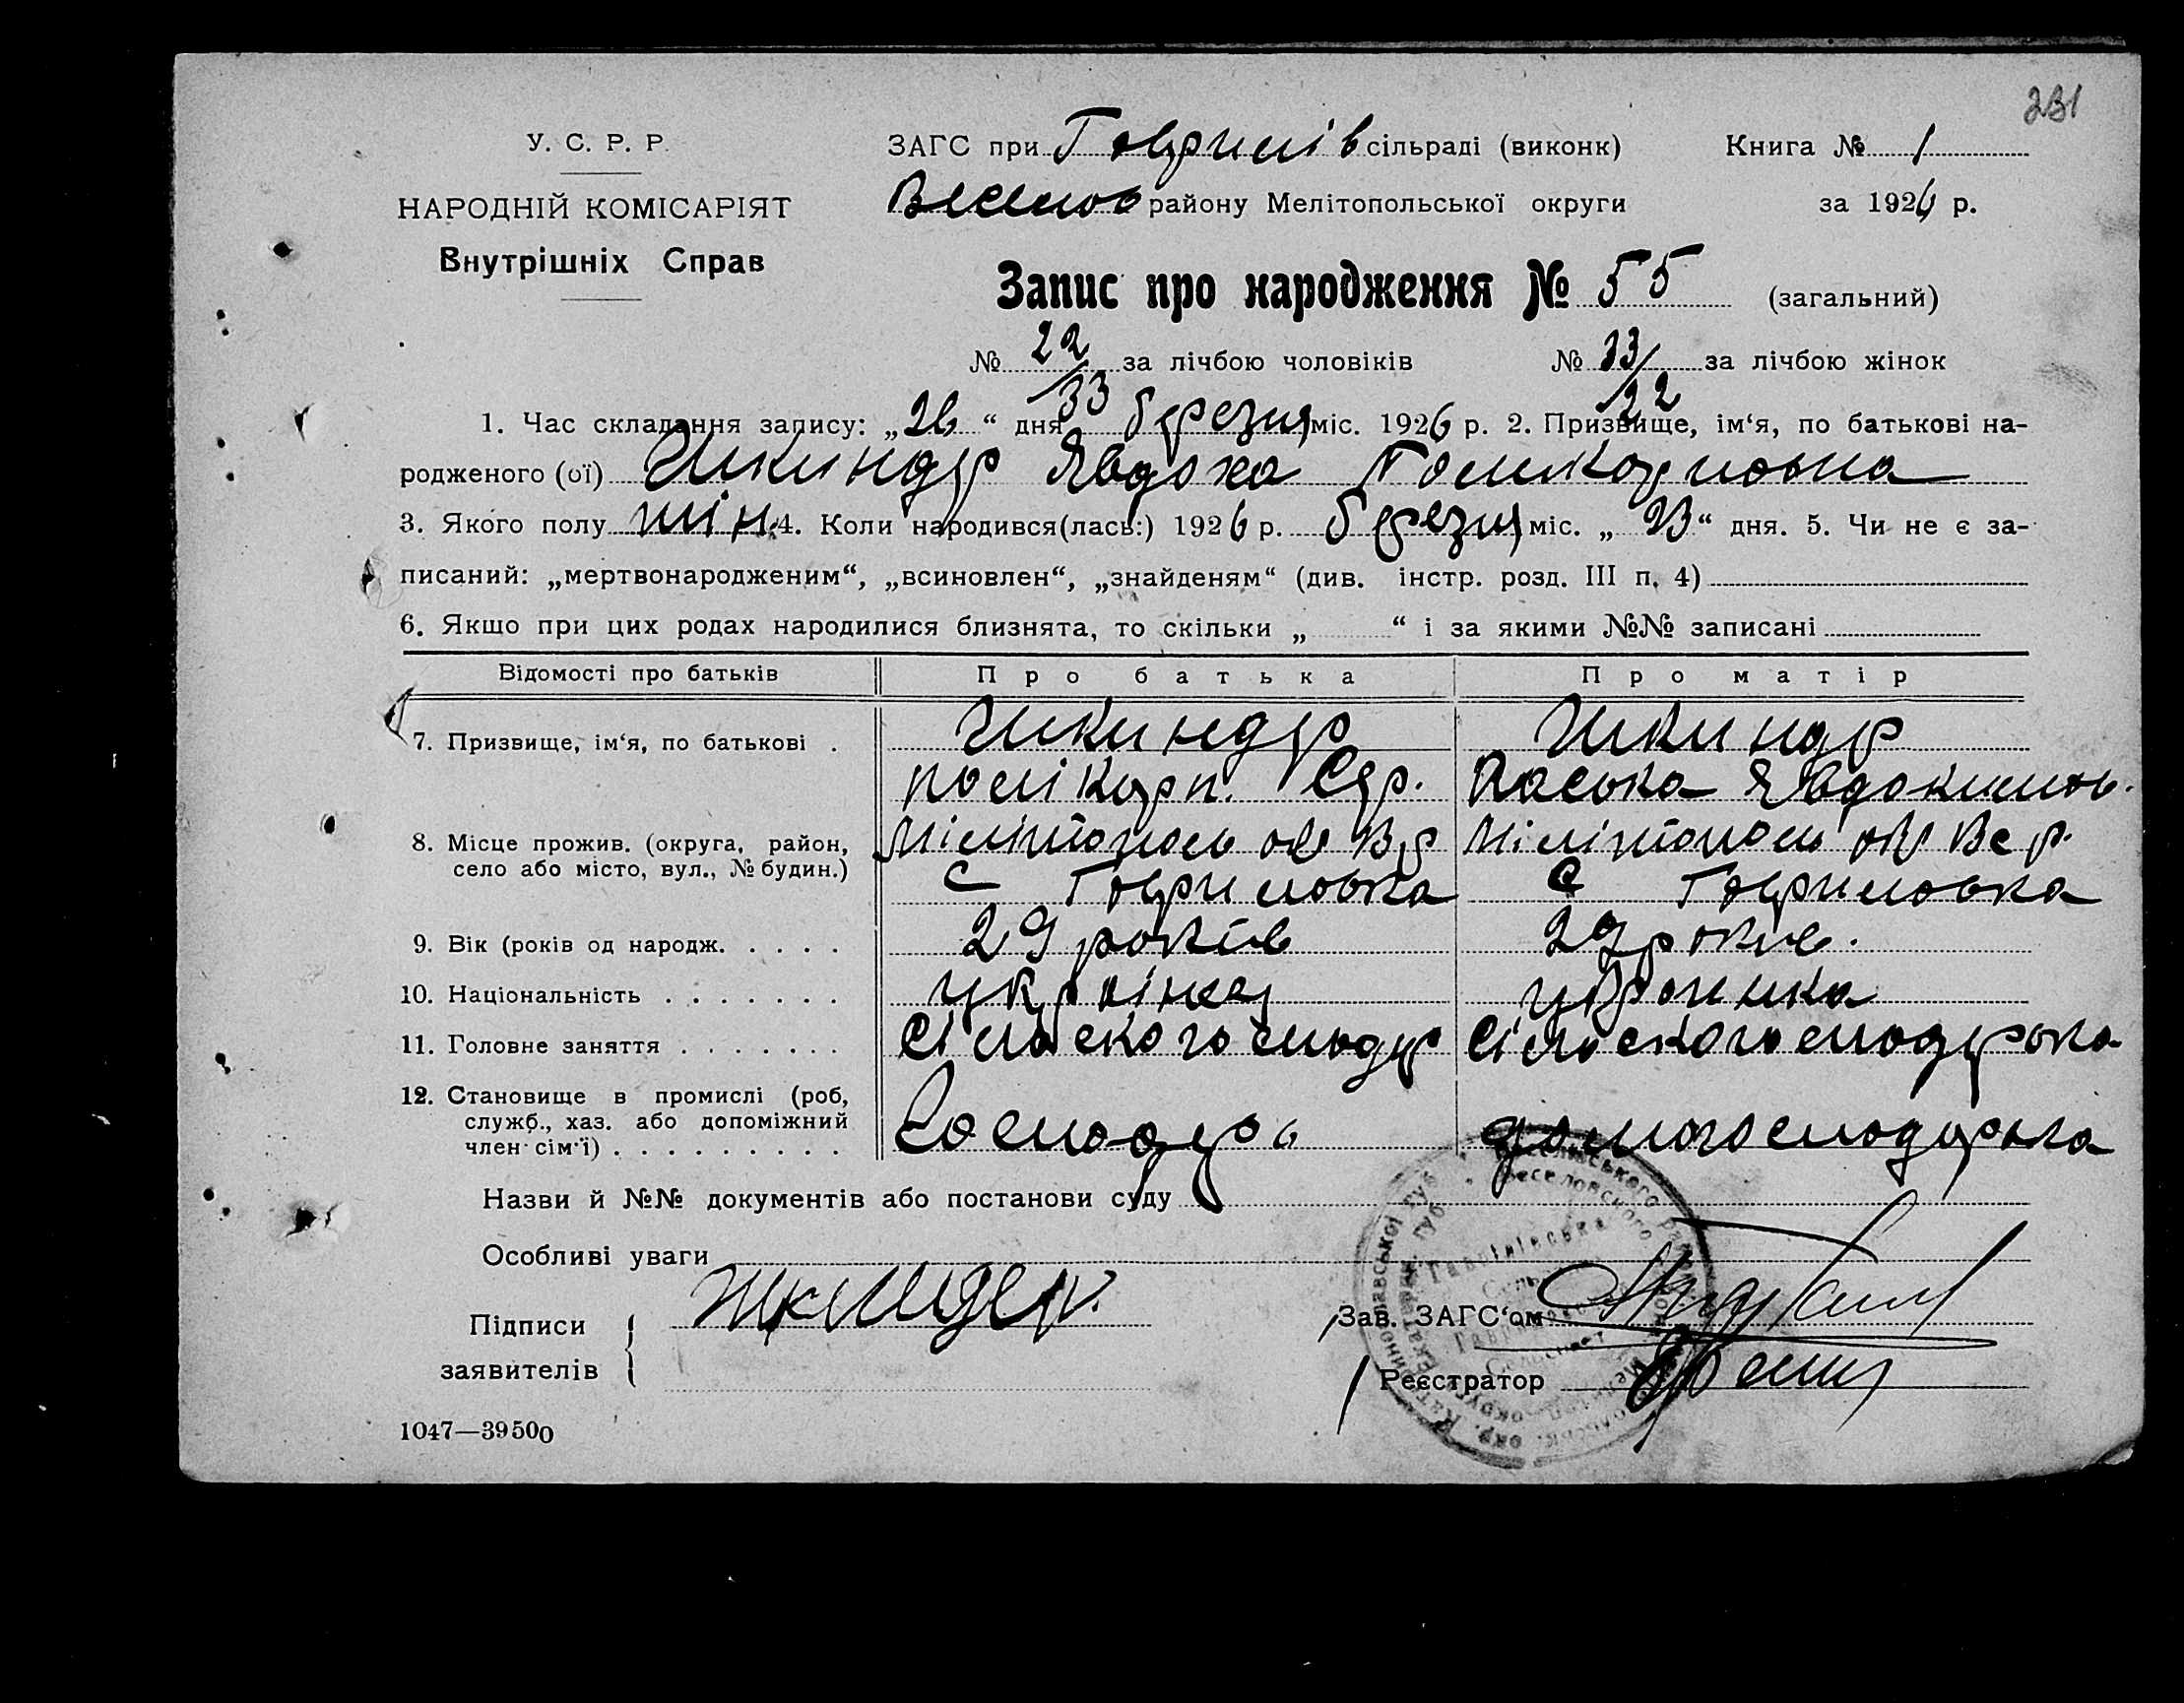 231
У. С. Р. Р.
НАРОДНІЙ КОМІСАРІЯТ
Внутрішніх Справ
ЗАГС при Гаврилів сільраді (виконк) Книга № 1
Весело району Мелітопольської округи за 1926 р.
Запис про народження № 55 (загальний)
№ 22/33 за лічбою чоловіків № 33/22 за лічбою жінок
1. Час складання запису: „26“ дня березня міс. 1926 р. 2. Призвище, ім‘я, по батькові на-
родженого (ої) Шкиндер Явдоха Полікарповна
3. Якого полу жін. 4. Коли народився(лась:) 1926 р. березня міс. „23“ дня. 5. Чи не є за-
писаний: „мертвонародженим“, „всиновлен“, „знайденям“ (див. інстр. розд. III п. 4)
6. Якщо при цих родах народилися близнята, то скільки „ “ і за якими №№ записані
Відомості про батьків Про батька Про матір
7. Призвище, ім‘я, по батькові . Шкиндер Шкиндер
Полікарп. Явдокимов.
8. Місце прожив. (округа, район, Мілітополь ов Вр Мілітополь ов Вс р.
село або місто, вул., № будин.) С Гавриловка С Гавриловка
9. Вік (років од народж. . . . . 29 років 29 років.
10. Національність . . . . . . . українец українка
11. Головне заняття . . . . . . . Сільского сподар Сільского сподарька
12. Становище в промислі (роб,
служб., хаз. або допоміжний Господарь домогосподарька
член сім‘ї) . . . . . . . . .
Назви й №№ документів або постанови суду
Особливі уваги
Підписи Шкиндер. Зав. ЗАГС‘ом
заявителів Реєстратор
1047—39500